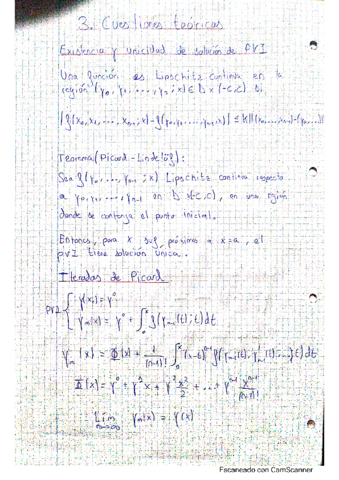 3. Cuestiones teóricas
Existencia y unicidad de solución de PVI
Una función es Lipschitz continua en la
región (y₀, y₁, ..., yₙ₋₁; x) ∈ D x (-c, c) si
|f(x₀, x₁, ..., xₙ₋₁; x) - f(y₀, y₁, ..., yₙ₋₁; x)| ≤ k||(x₀, ..., xₙ₋₁) - (y₀, ...)||
Teorema (Picard-Lindelöf):
Sea f(y₀, ..., yₙ₋₁; x) Lipschitz continua respecto
a y₀, y₁, ..., yₙ₋₁ en D x(-c, c), en una región
donde se contenga el punto inicial.
Entonces, para x suf. próximos a x=a, el
PVI tiene solución única.
Iteradas de Picard
PVI { y(x₀) = y⁰
yₘ(x) = y⁰ + ∫₀ˣ f(yₘ₋₁(t); t) dt
yₘ(x) = Φ(x) + 1/(n-1)! ∫₀ˣ (x-t)ⁿ⁻¹ f(yₘ₋₁(t), y'ₘ₋₁(t), ...; t) dt
Φ(x) = y⁰ + y²x + y² x²/2 + ... + yⁿ⁻¹ xⁿ⁻¹/(n-1)!
Lim yₘ(x) = y(x)
Escaneado con CamScanner